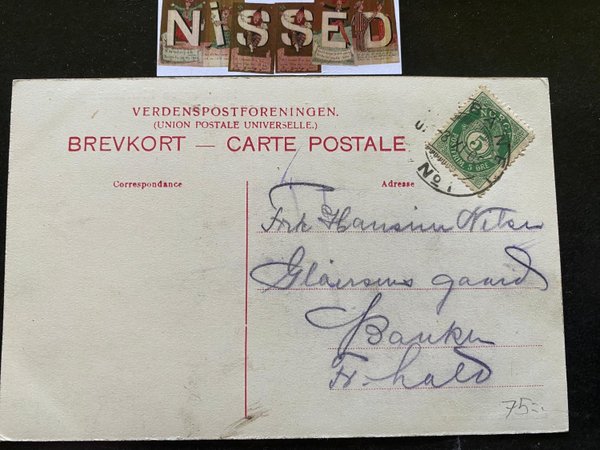 NISSED
VERDENSPOSTFORENINGEN.
(UNION POSTALE UNIVERSELLE.)
BREVKORT — CARTE POSTALE
NORGE
5
Correspondance
Adresse
No 1
Frk Hansine
gaard
Banken
Fr.hald
75